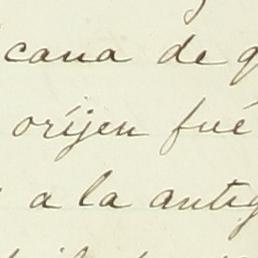 cana de
oríjen fué
a la antig